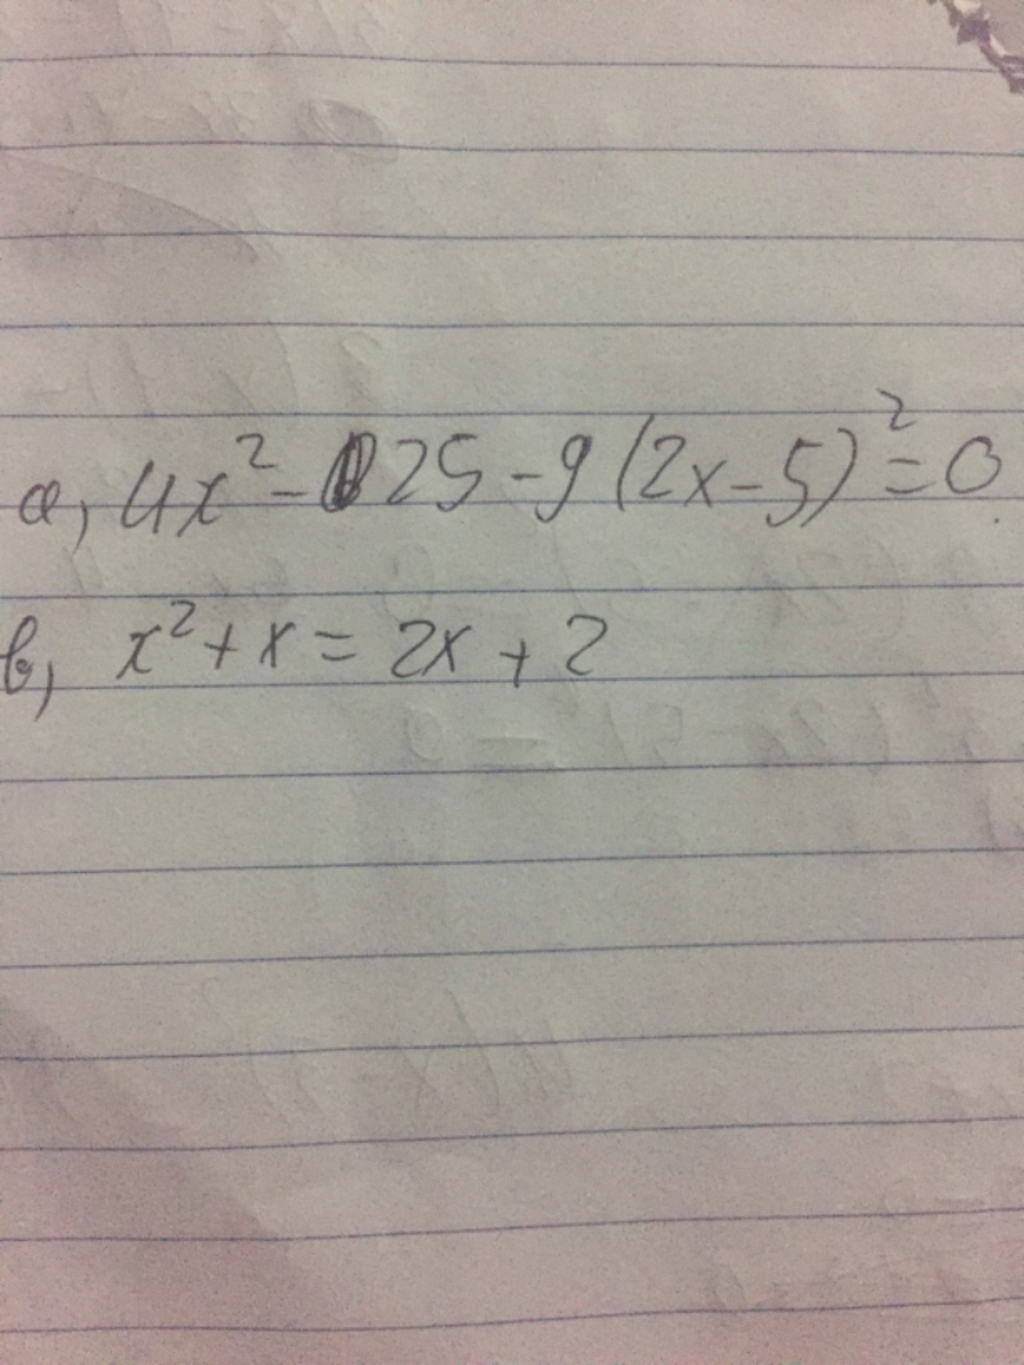 a, 4x² - 25 - 9 (2x - 5)² = 0
b, x² + x = 2x + 2